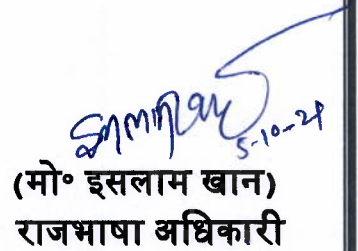 5-10-21
(मो॰ इसलाम खान)
राजभाषा अधिकारी